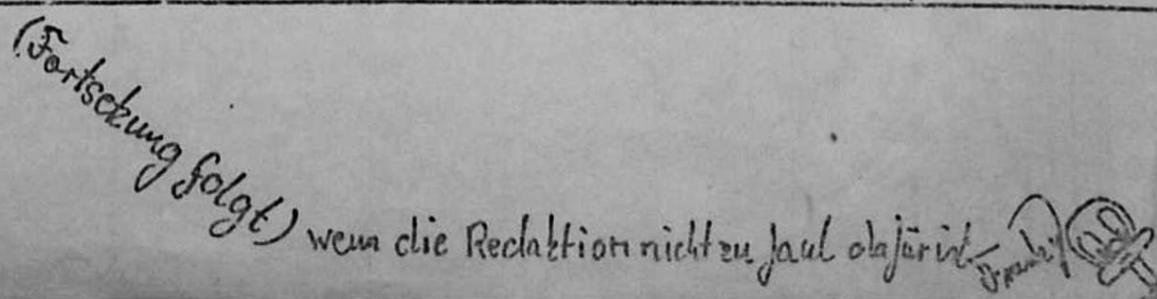 (Fortsetzung folgt) wenn die Redaktion nicht zu faul dafür ist